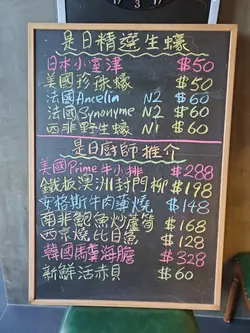 是日精選生蠔
日本小室津 $50
美國珍珠蠔 $50
法國Ancelin N2 $60
法國Synonyme N2 $60
西非野生蠔 N1 $60
是日廚師推介
美國Prime牛小排 $288
鐵板澳洲封門柳 $198
安格斯牛肉蔥燒 $148
南非鮑魚炒蘆筍 $168
西京燒比目魚 $128
韓國馬糞海膽 $328
新鮮活赤貝 $60